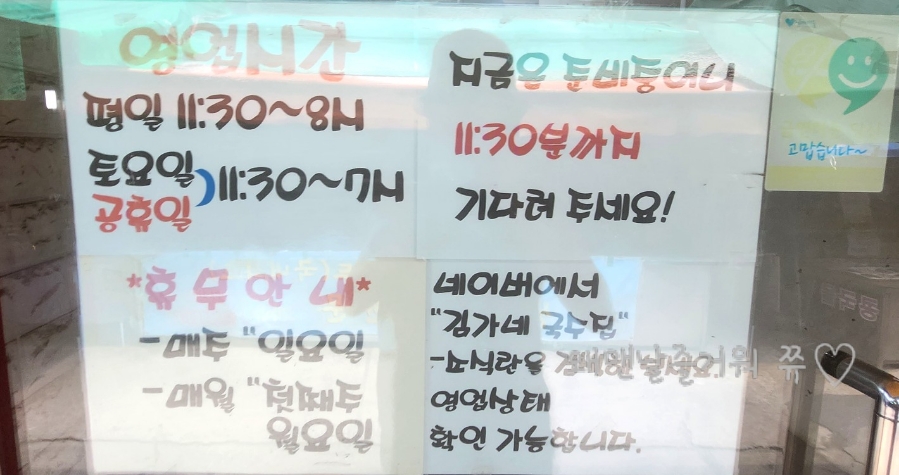 영업시간
평일 11:30~8시
토요일
공휴일
) 11:30~7시
지금은 준비중이니
11:30분까지
기다려 주세요!
*휴무안내*
- 매주 "일요일
- 매월 "첫째주
월요일
네이버에서
"김가네 국수집"
-소식란을
영업상태
확인 가능합니다.
고맙습니다~
쮸♡